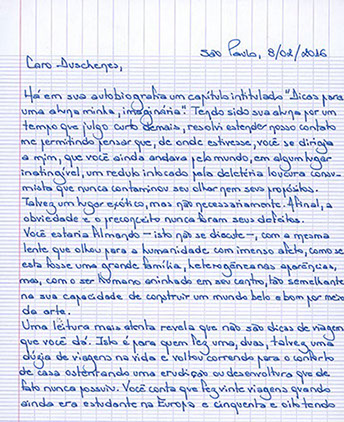 São Paulo, 8/02/2016
Caro Duschenes,
Há em sua autobiografia um capítulo intitulado "Dicas para
uma aluna minha, imaginária". Tendo sido sua aluna por um
tempo que julgo curto demais, resolvi estender nosso contato
me permitindo pensar que, de onde estivesse, você se dirigia
a mim, que você ainda andava pelo mundo, em algum lugar
inatingível, um reduto intocado pela deletéria loucura consu-
mista que nunca contaminou seu olhar nem seus propósitos.
Talvez um lugar exótico, mas não necessariamente. Afinal, a
obviedade e o preconceito nunca foram seus defeitos.
Você estaria filmando – isto não se discute –, com a mesma
lente que olhou para a humanidade com imenso afeto, como se
esta fosse uma grande família, heterogênea nas aparências,
mas, com o ser humano aninhado em seu centro, tão semelhante
na sua capacidade de construir um mundo belo e bom por meio
da arte.
Uma leitura mais atenta revela que não são dicas de viagem
que você dá. Isto é para quem fez uma, duas, talvez uma
dúzia de viagens na vida e voltou correndo para o conforto
de casa ostentando uma erudição ou desenvoltura que de
fato nunca possuiu. Você conta que fez vinte viagens quando
ainda era estudante na Europa e cinquenta e oito tendo